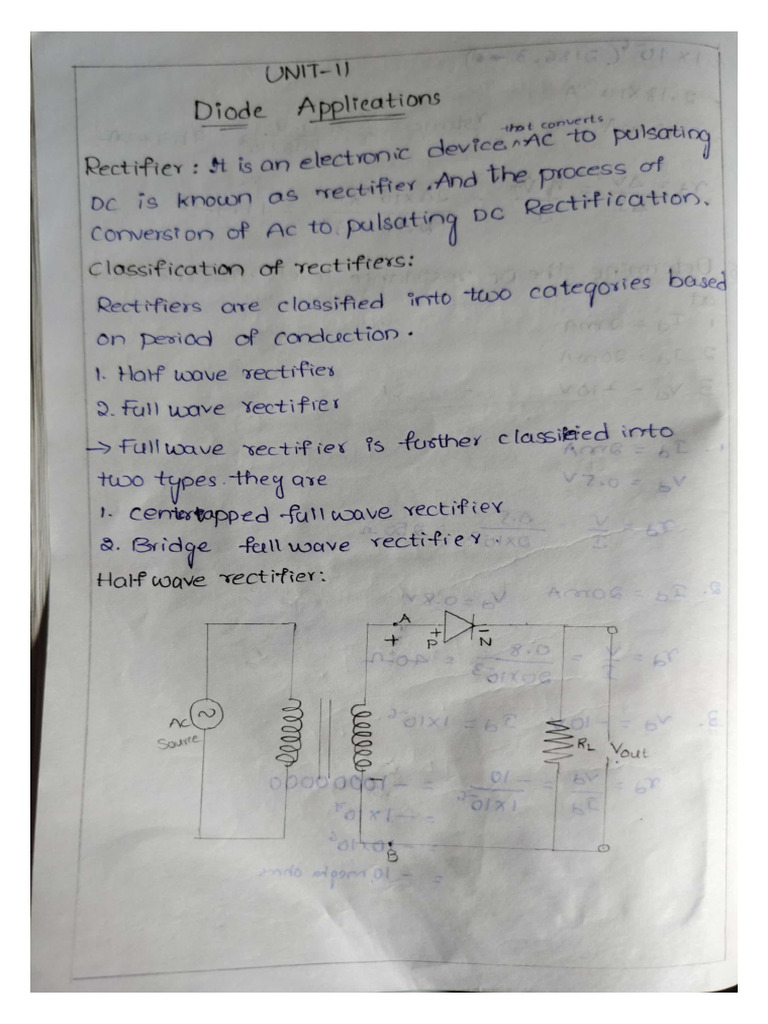 UNIT-II
Diode Applications
that converts
Rectifier: It is an electronic device ^ AC to pulsating
DC is known as rectifier. And the process of
conversion of AC to pulsating DC Rectification.
Classification of rectifiers:
Rectifiers are classified into two categories based
on period of conduction.
1. Half wave rectifier
2. Full wave rectifier
→ Full wave rectifier is further classified into
two types. they are
1. Centertapped full wave rectifier
2. Bridge full wave rectifier.
Half wave rectifier:
A
+ P
- N
+
AC
Source
RL
Vout
B